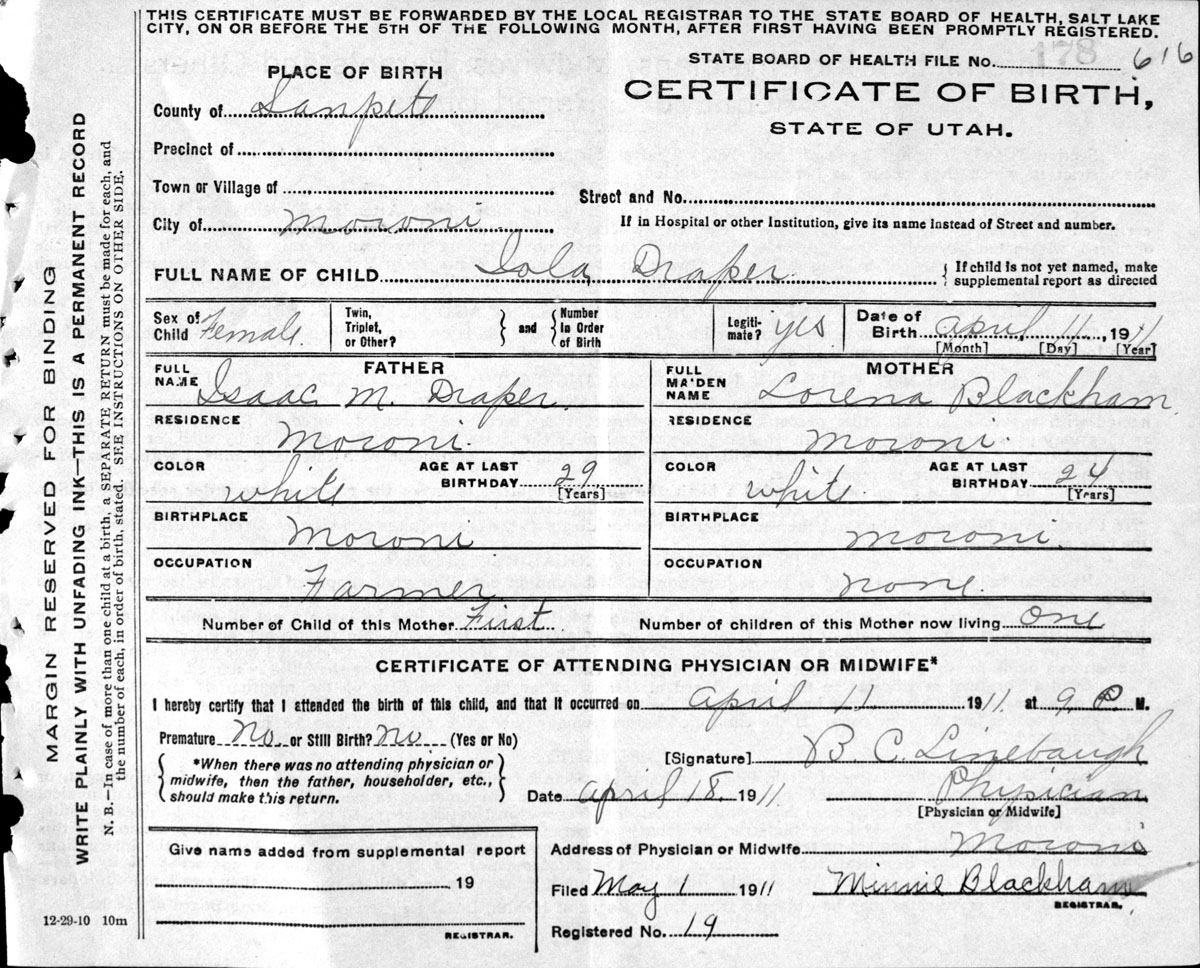 THIS CERTIFICATE MUST BE FORWARDED BY THE LOCAL REGISTRAR TO THE STATE BOARD OF HEALTH, SALT LAKE
CITY, ON OR BEFORE THE 5TH OF THE FOLLOWING MONTH, AFTER FIRST HAVING BEEN PROMPTLY REGISTERED.
STATE BOARD OF HEALTH FILE No. 178 616
PLACE OF BIRTH
CERTIFICATE OF BIRTH,
STATE OF UTAH.
County of Sanpete
Precinct of
Town or Village of
Street and No.
City of Moroni
If in Hospital or other Institution, give its name instead of Street and number.
FULL NAME OF CHILD Iola Draper
{ If child is not yet named, make
supplemental report as directed
Sex of Child Female
Twin, Triplet, or Other? } and { Number In Order of Birth
Legiti-mate? yes
Date of Birth April, 11, 1911
[Month] [Day] [Year]
FATHER
FULL NAME Isaac M. Draper
RESIDENCE Moroni
COLOR White AGE AT LAST BIRTHDAY 29 [Years]
BIRTHPLACE Moroni
OCCUPATION Farmer
MOTHER
FULL MAIDEN NAME Lorena Blackham
RESIDENCE Moroni.
COLOR White AGE AT LAST BIRTHDAY 24 [Years]
BIRTHPLACE Moroni.
OCCUPATION None.
Number of Child of this Mother First Number of children of this Mother now living one
CERTIFICATE OF ATTENDING PHYSICIAN OR MIDWIFE*
I hereby certify that I attended the birth of this child, and that it occurred on April 11 1911 at 9 P. M.
Premature No or Still Birth? No (Yes or No)
{ *When there was no attending physician or
midwife, then the father, householder, etc.,
should make this return. }
[Signature] B. C. Linebaugh
Date April 18, 1911 Physician
[Physician or Midwife]
Give name added from supplemental report
19
REGISTRAR.
Address of Physician or Midwife Moroni
Filed May 1 1911 Minnie Blackham
REGISTRAR.
Registered No. 19
12-29-10 10m
MARGIN RESERVED FOR BINDING
WRITE PLAINLY WITH UNFADING INK—THIS IS A PERMANENT RECORD
N. B.—In case of more than one child at a birth, a SEPARATE RETURN must be made for each, and
the number of each, in order of birth, stated. SEE INSTRUCTIONS ON OTHER SIDE.